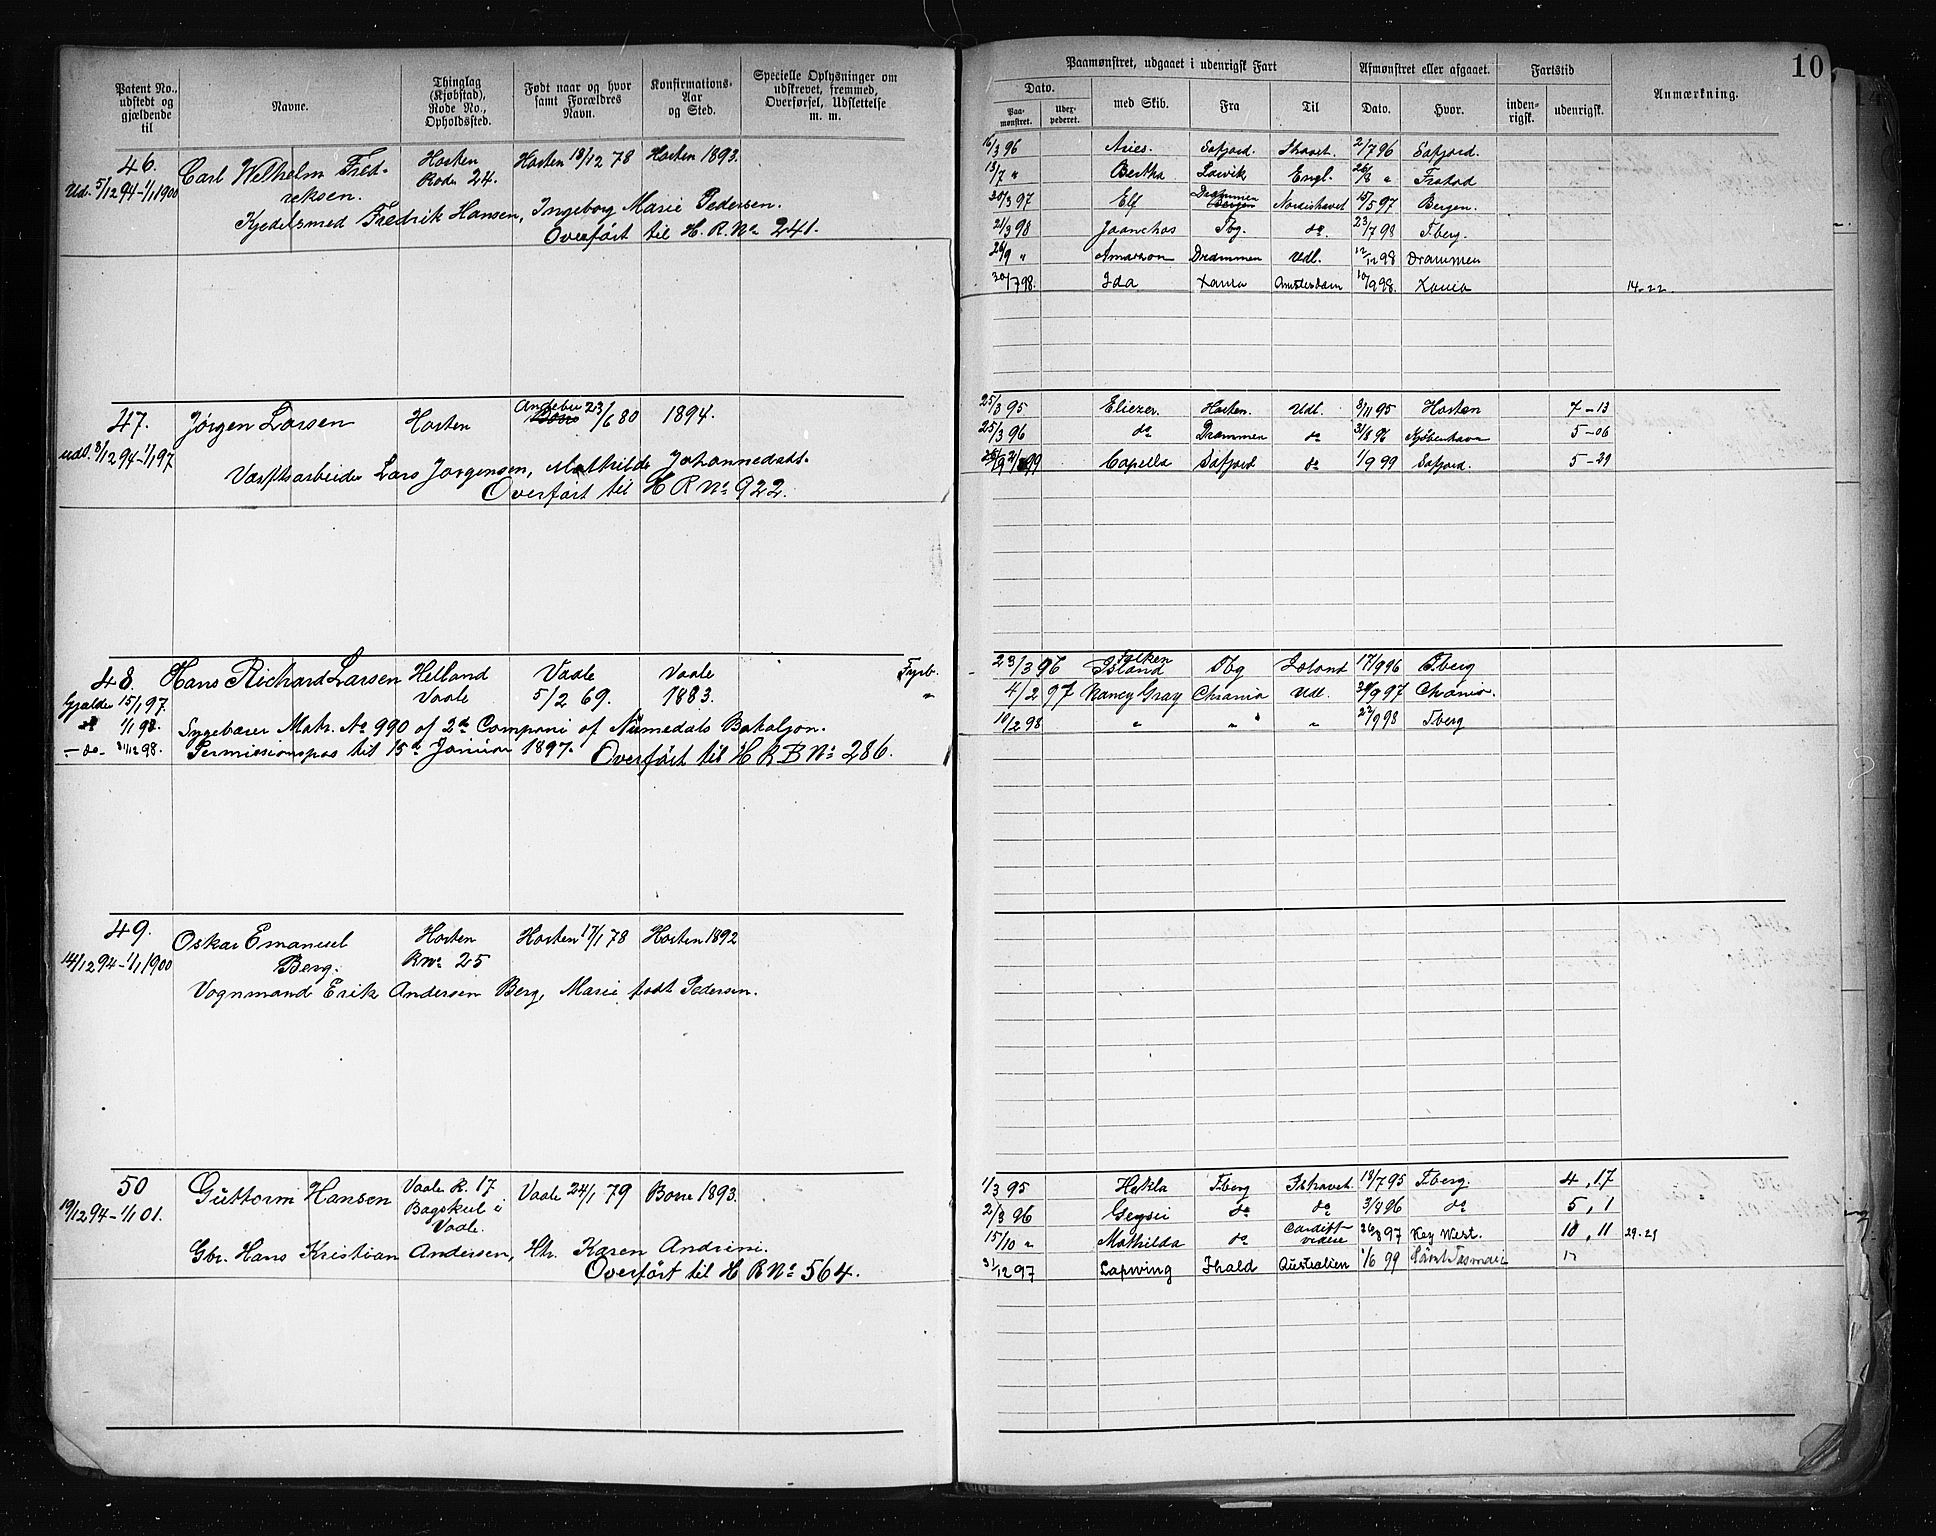 Patent No., udstedt og gjældende til
Navne.
Thinglag (Kjøbstad), Rode No., Opholdssted.
Født naar og hvor samt Forældres Navn.
Konfirmations-Aar og Sted.
Specielle Oplysninger om udskrevet, fremmed, Overførsel, Udslettelse m. m.
46. Carl Wilhelm Fred- Horten Horten 13/12 78 Horten 1893.
Ud. 5/12 94-1/1 1900 reksen. Rode 24.
Kjedelsmed Fredrik Hansen, Ingeborg Marie Pedersen.
Overført til H. R. No 241.
47. Jørgen Larsen Horten Andebu 23/6 80 1894.
Udst. 3/12 94-1/1 97
Værftsarbeider Lars Jørgensen, Mathilde Johannesdatt.
Overført til H R No 922.
48. Hans Richard Larsen Helland Vaale Vaale Fyrb.
Gjælder 15/1 97. Vaale 5/2 69. 1883. "
do 1/1 98. Ingebærer Matr. No 990 af 2d Compani af Numedals Bataljon.
- do - 31/12 98. Permissionspas til 15d Januar 1897. Overført til H R B No 286.
49. Oskar Emanuel Horten Horten 17/1 78 Horten 1892
14/12 94-1/1 1900 Berg. R No 25
Vognmand Erik Andersen Berg, Marie født Pedersen.
50 Guttorm Hansen Vaale R. 17 Vaale 24/1 79 Borre 1893.
19/12 94-1/1 01. Bagskul i Vaale.
Gbr. Hans Kristian Andersen, Htr. Karen Andrini.
Overført til H R No 564.
10
Paamønstret, udgaaet i udenrigsk Fart
Afmønstret eller afgaaet.
Fartstid
Anmærkning.
Dato.
Paa-mønstret.
Udex-pederet.
med Skib.
Fra
Til
Dato.
Hvor.
inden-rigsk.
udenrigsk.
16/3 96 Aries. Safjord. Ishavet. 2/7 96 Safjord.
13/7 " Bertha Larvik Engl. 26/8 " Frstad
20/3 97 Elf Drammen Bergen Nordishavet 15/5 97 Bergen.
21/3 98 Tbg. do. 23/7 98 Tberg.
26/9 " Drammen Udl. 12/12 98 Drammen
30/7 98. Ida Xania Amsterdam 10/9 98. Xania 14-22
25/3 95 Eliezer. Horten. Udl. 8/11 95 Horten 7-13
25/3 96 do Drammen do 31/8 96 Kjøbenhavn 5-06
99 Capella Safjord do 1/9 99 Safjord. 5-29
23/3 96 Falken Island Tbg Island 17/9 96 Tberg
4/2 97 Nancy Gray Chrania Udl. 29/9 97 Chrania.
10/2 98 " " " " 22/9 98 Tberg
1/3 95 Hekla Tberg Ishavet 18/7 95 Tberg. 4, 17
2/3 96 Geysir do do 3/8 96 do 5, 1
15/10 " Mathilda do Cardiff videre 26/8 97 Key West. 10, 11 29-29
31/12 97 Lapwing Fhald Australien 1/6 99 "